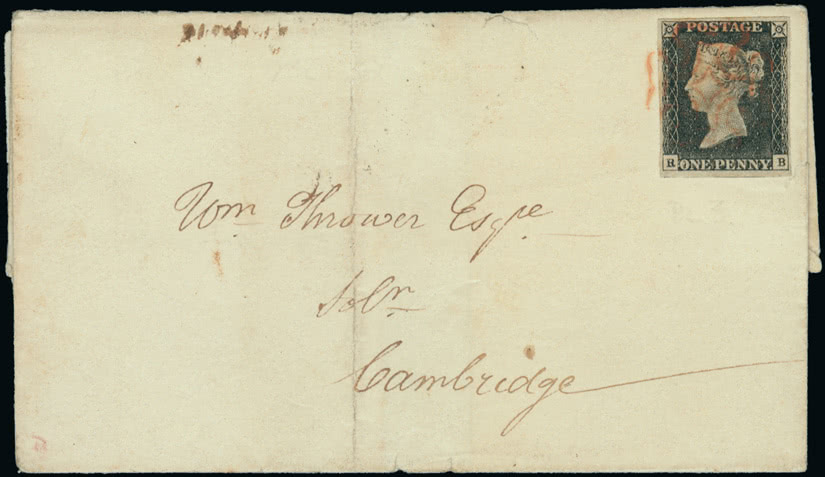 POSTAGE
R ONE PENNY. B
Wm Thrower Esqre
Solr
Cambridge